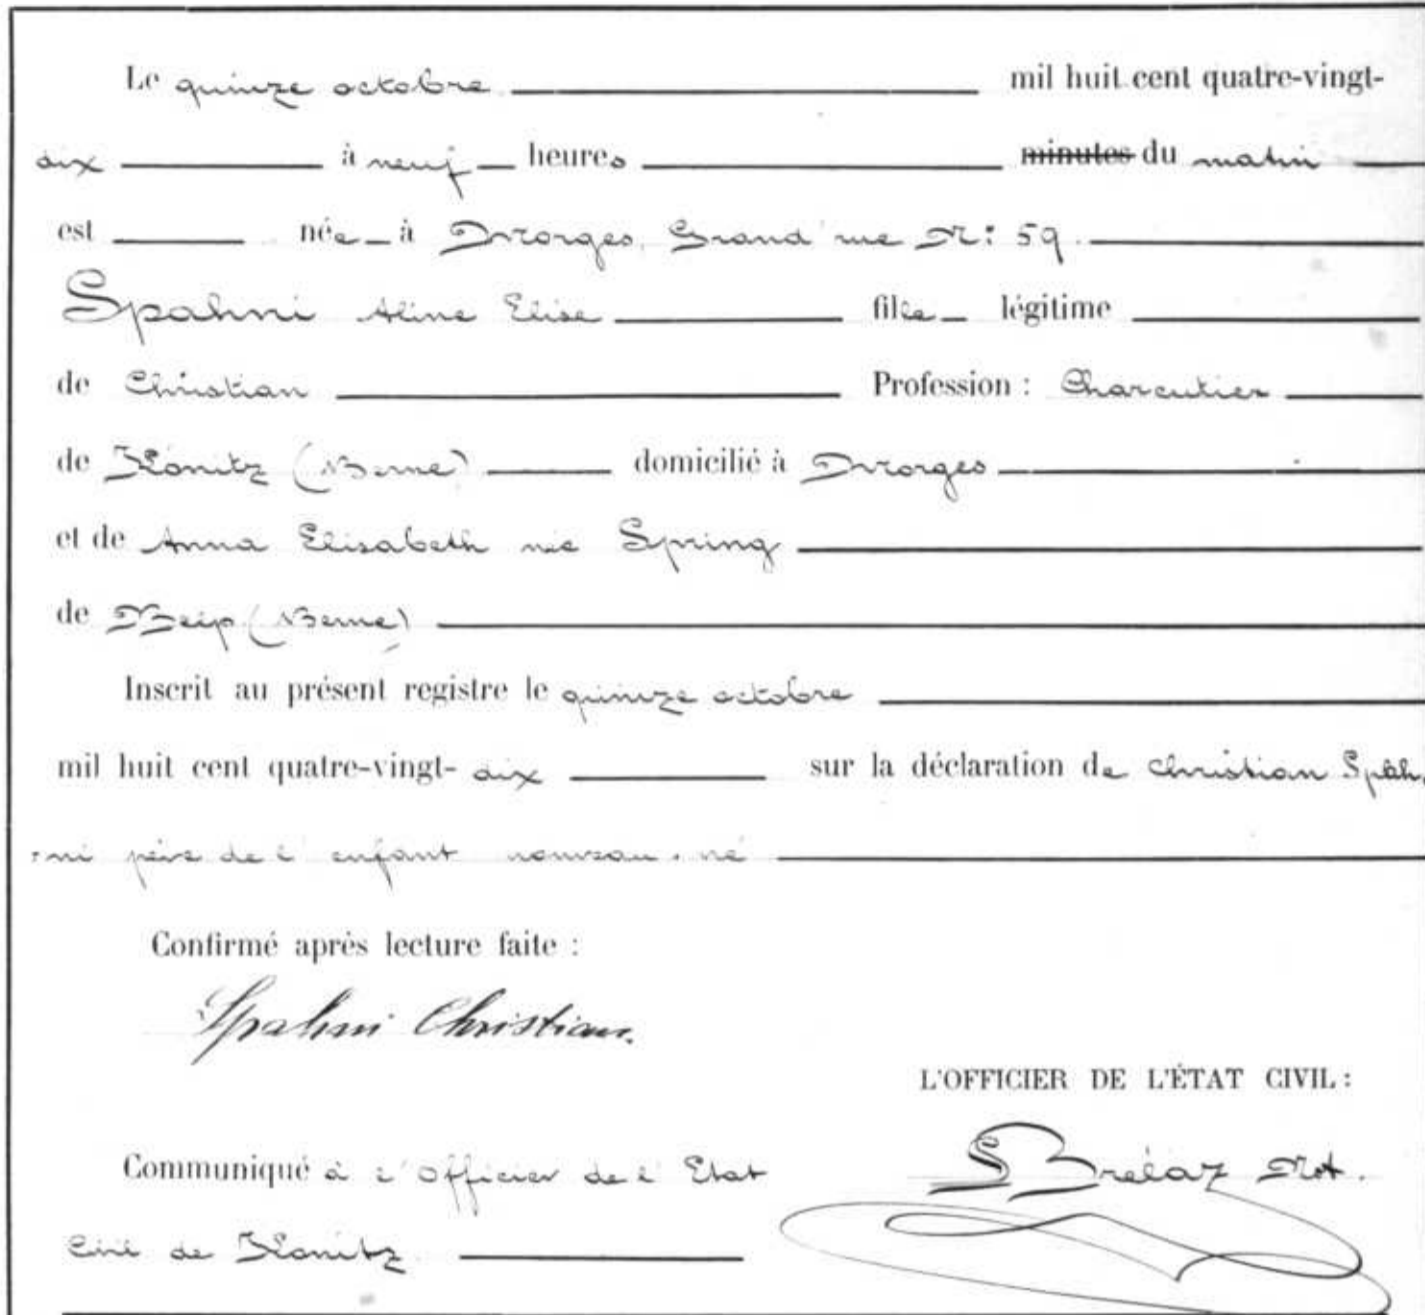 Le quinze octobre mil huit cent quatre-vingt-
dix à neuf heures minutes du matin
est née à Morges, Grand'rue No: 59.
Spahni Aline Elise fille légitime
de Christian Profession : Charcutier
de Könitz (Berne) domicilié à Morges
et de Anna Elisabeth née Spring
de (Berne)
Inscrit au présent registre le quinze octobre
mil huit cent quatre-vingt- dix sur la déclaration de Christian Späh,
ni père de l'enfant nouveau-né
Confirmé après lecture faite :
Spahni Christian.
L'OFFICIER DE L'ÉTAT CIVIL :
Communiqué à l'Officier de l'Etat
S Brélaz Not.
Civil de Könitz.